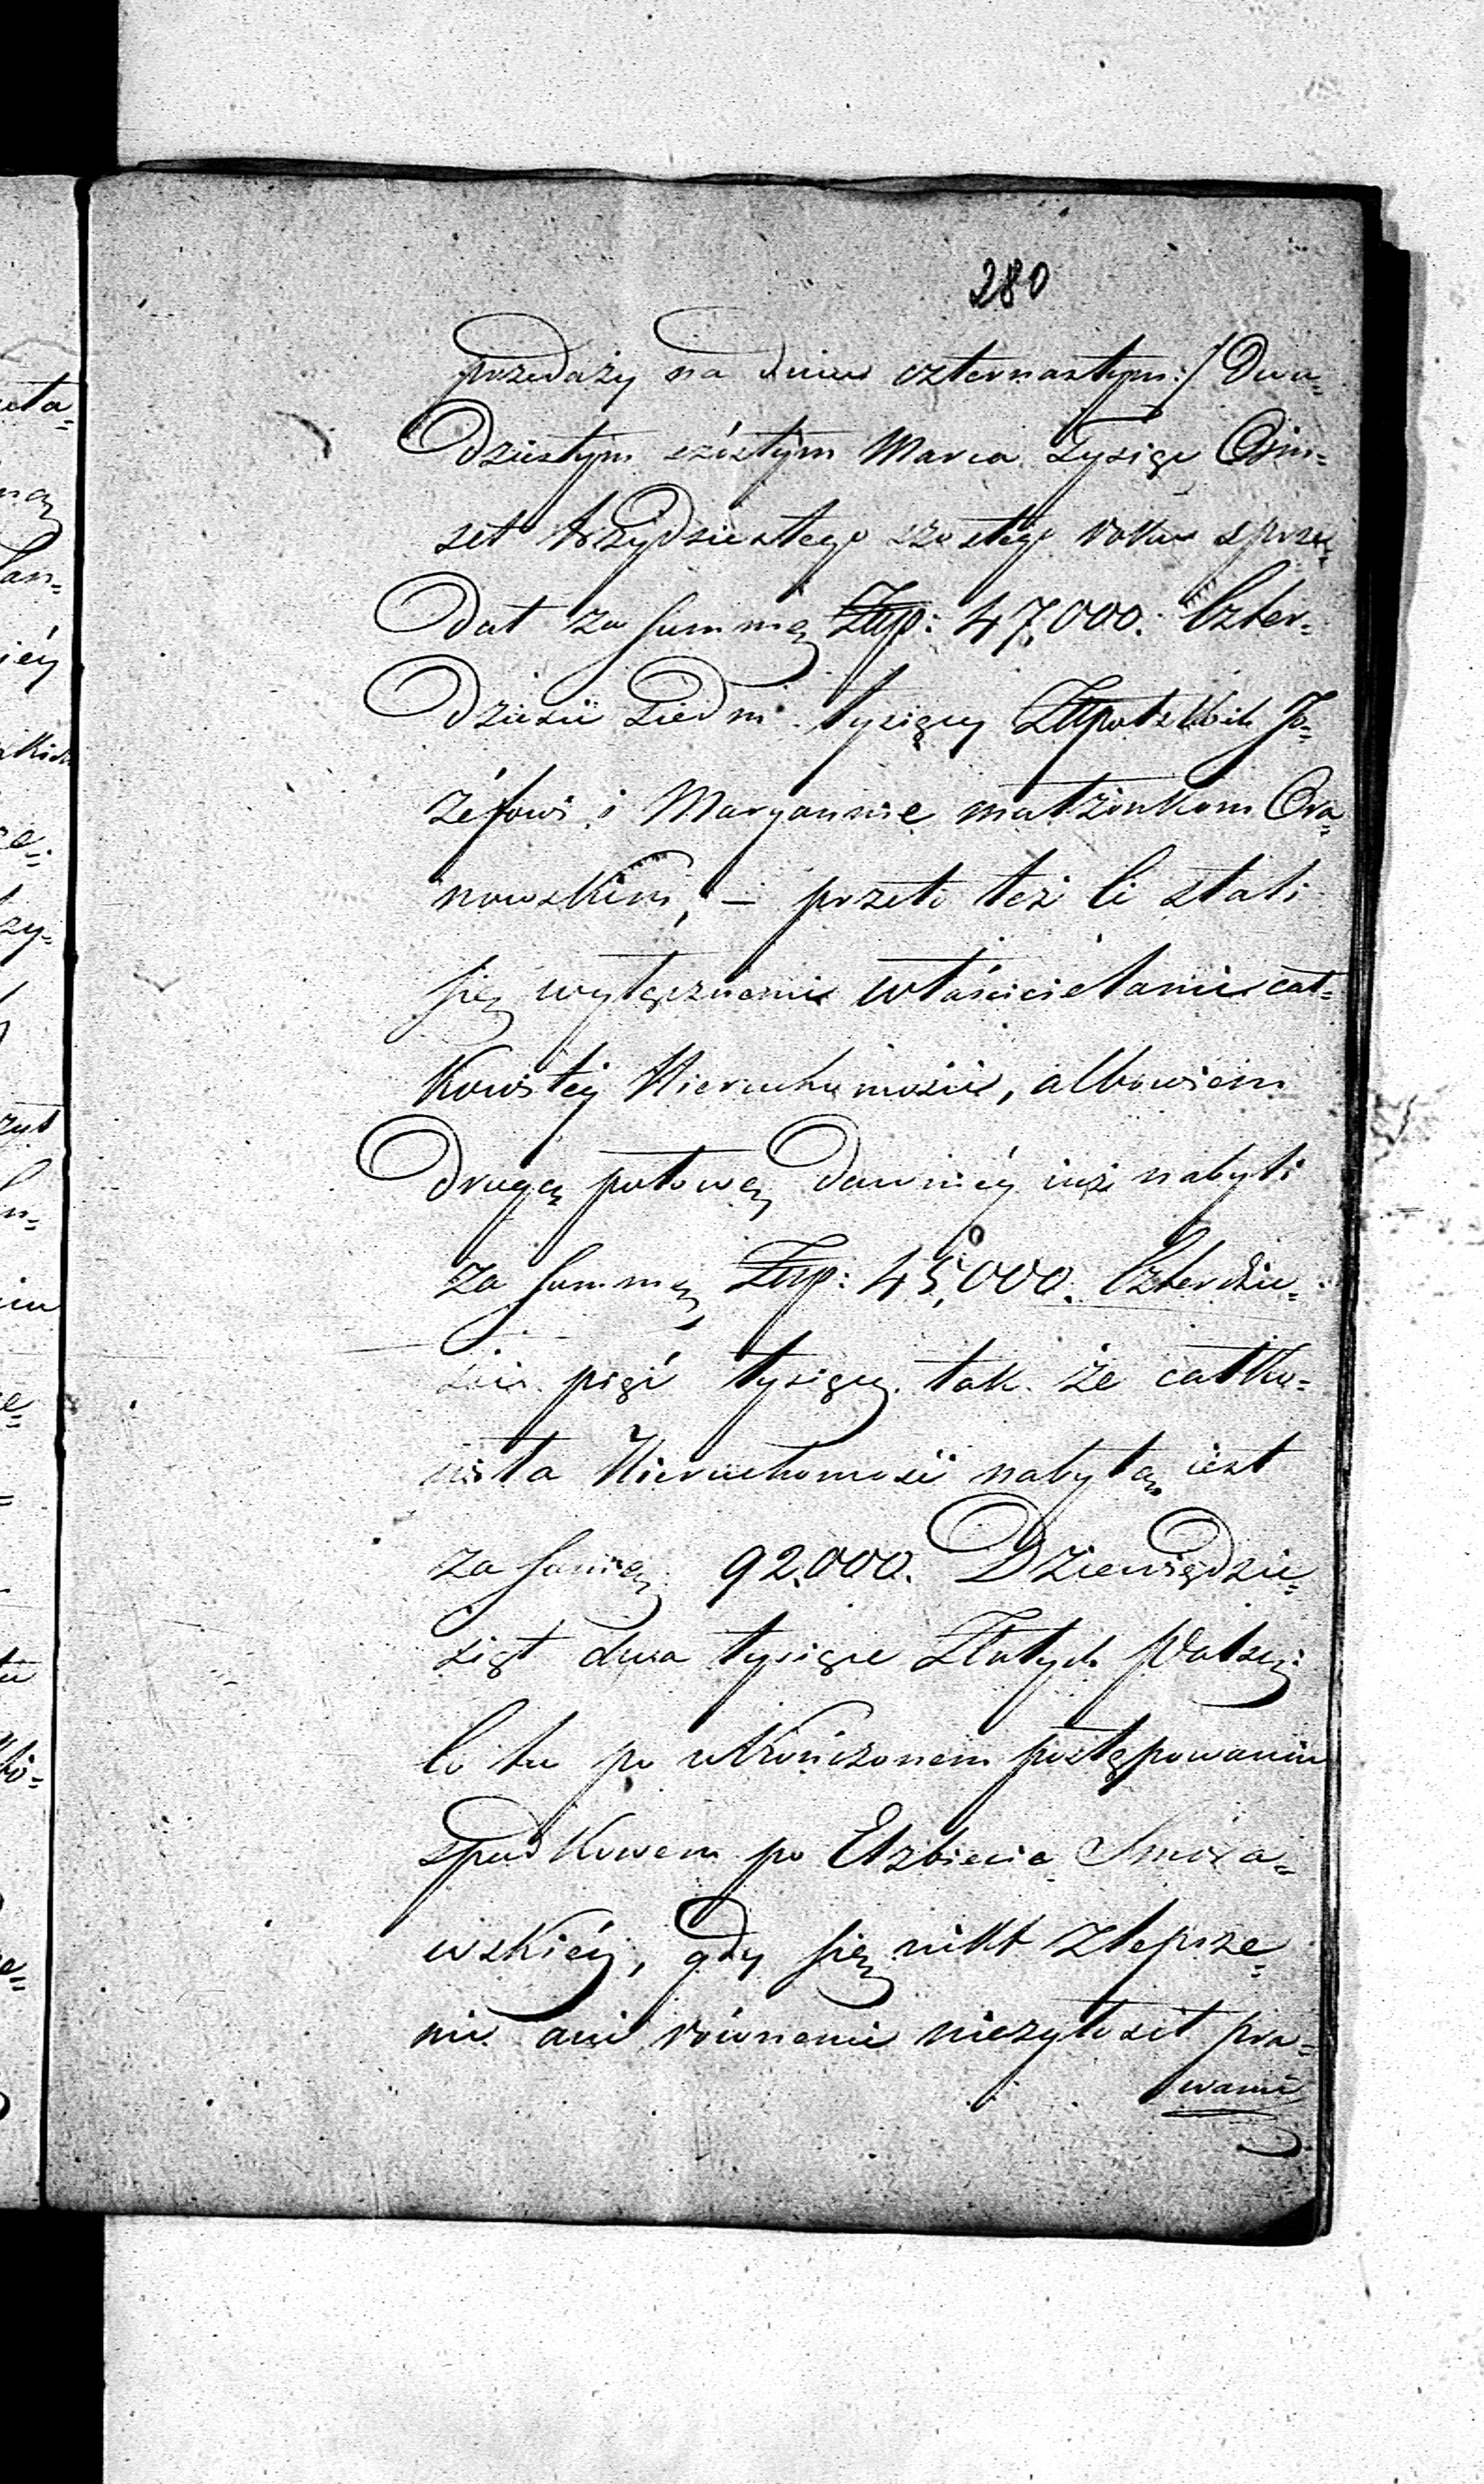 280
przedaży na dniu czternastym:/ Dwu=
dziestym szóstym Marca Tysiąc Ośm=
set trzydziestego szostego roku sprze=
dał za summę Złtp: 47,000. Czter=
dzieści siedm tysięcy Złtpolskich Jó=
zéfowi i Maryannie małżonkom Ora=
nowskim, – przeto też Ci stali
się wyłącznemi właścicielami cał=
kowitéy Nieruchomości, albowiem
drugą połowę dawniéy iuż nabyli
za summę Złtp: 45,000. Czterdzie=
ści pięć tysięcy, tak że całko=
wita Nieruchomość nabytą iest
za summę 92,000. Dziewięćdzie=
siąt dwa tysiące Złotych Polsk:
Co tu po ukończonem postępowaniu
spadkowem po Elżbiecie
wskiéy, gdy się nikt z lepsze=
mi ani równemi niezgłosił pra=
wami